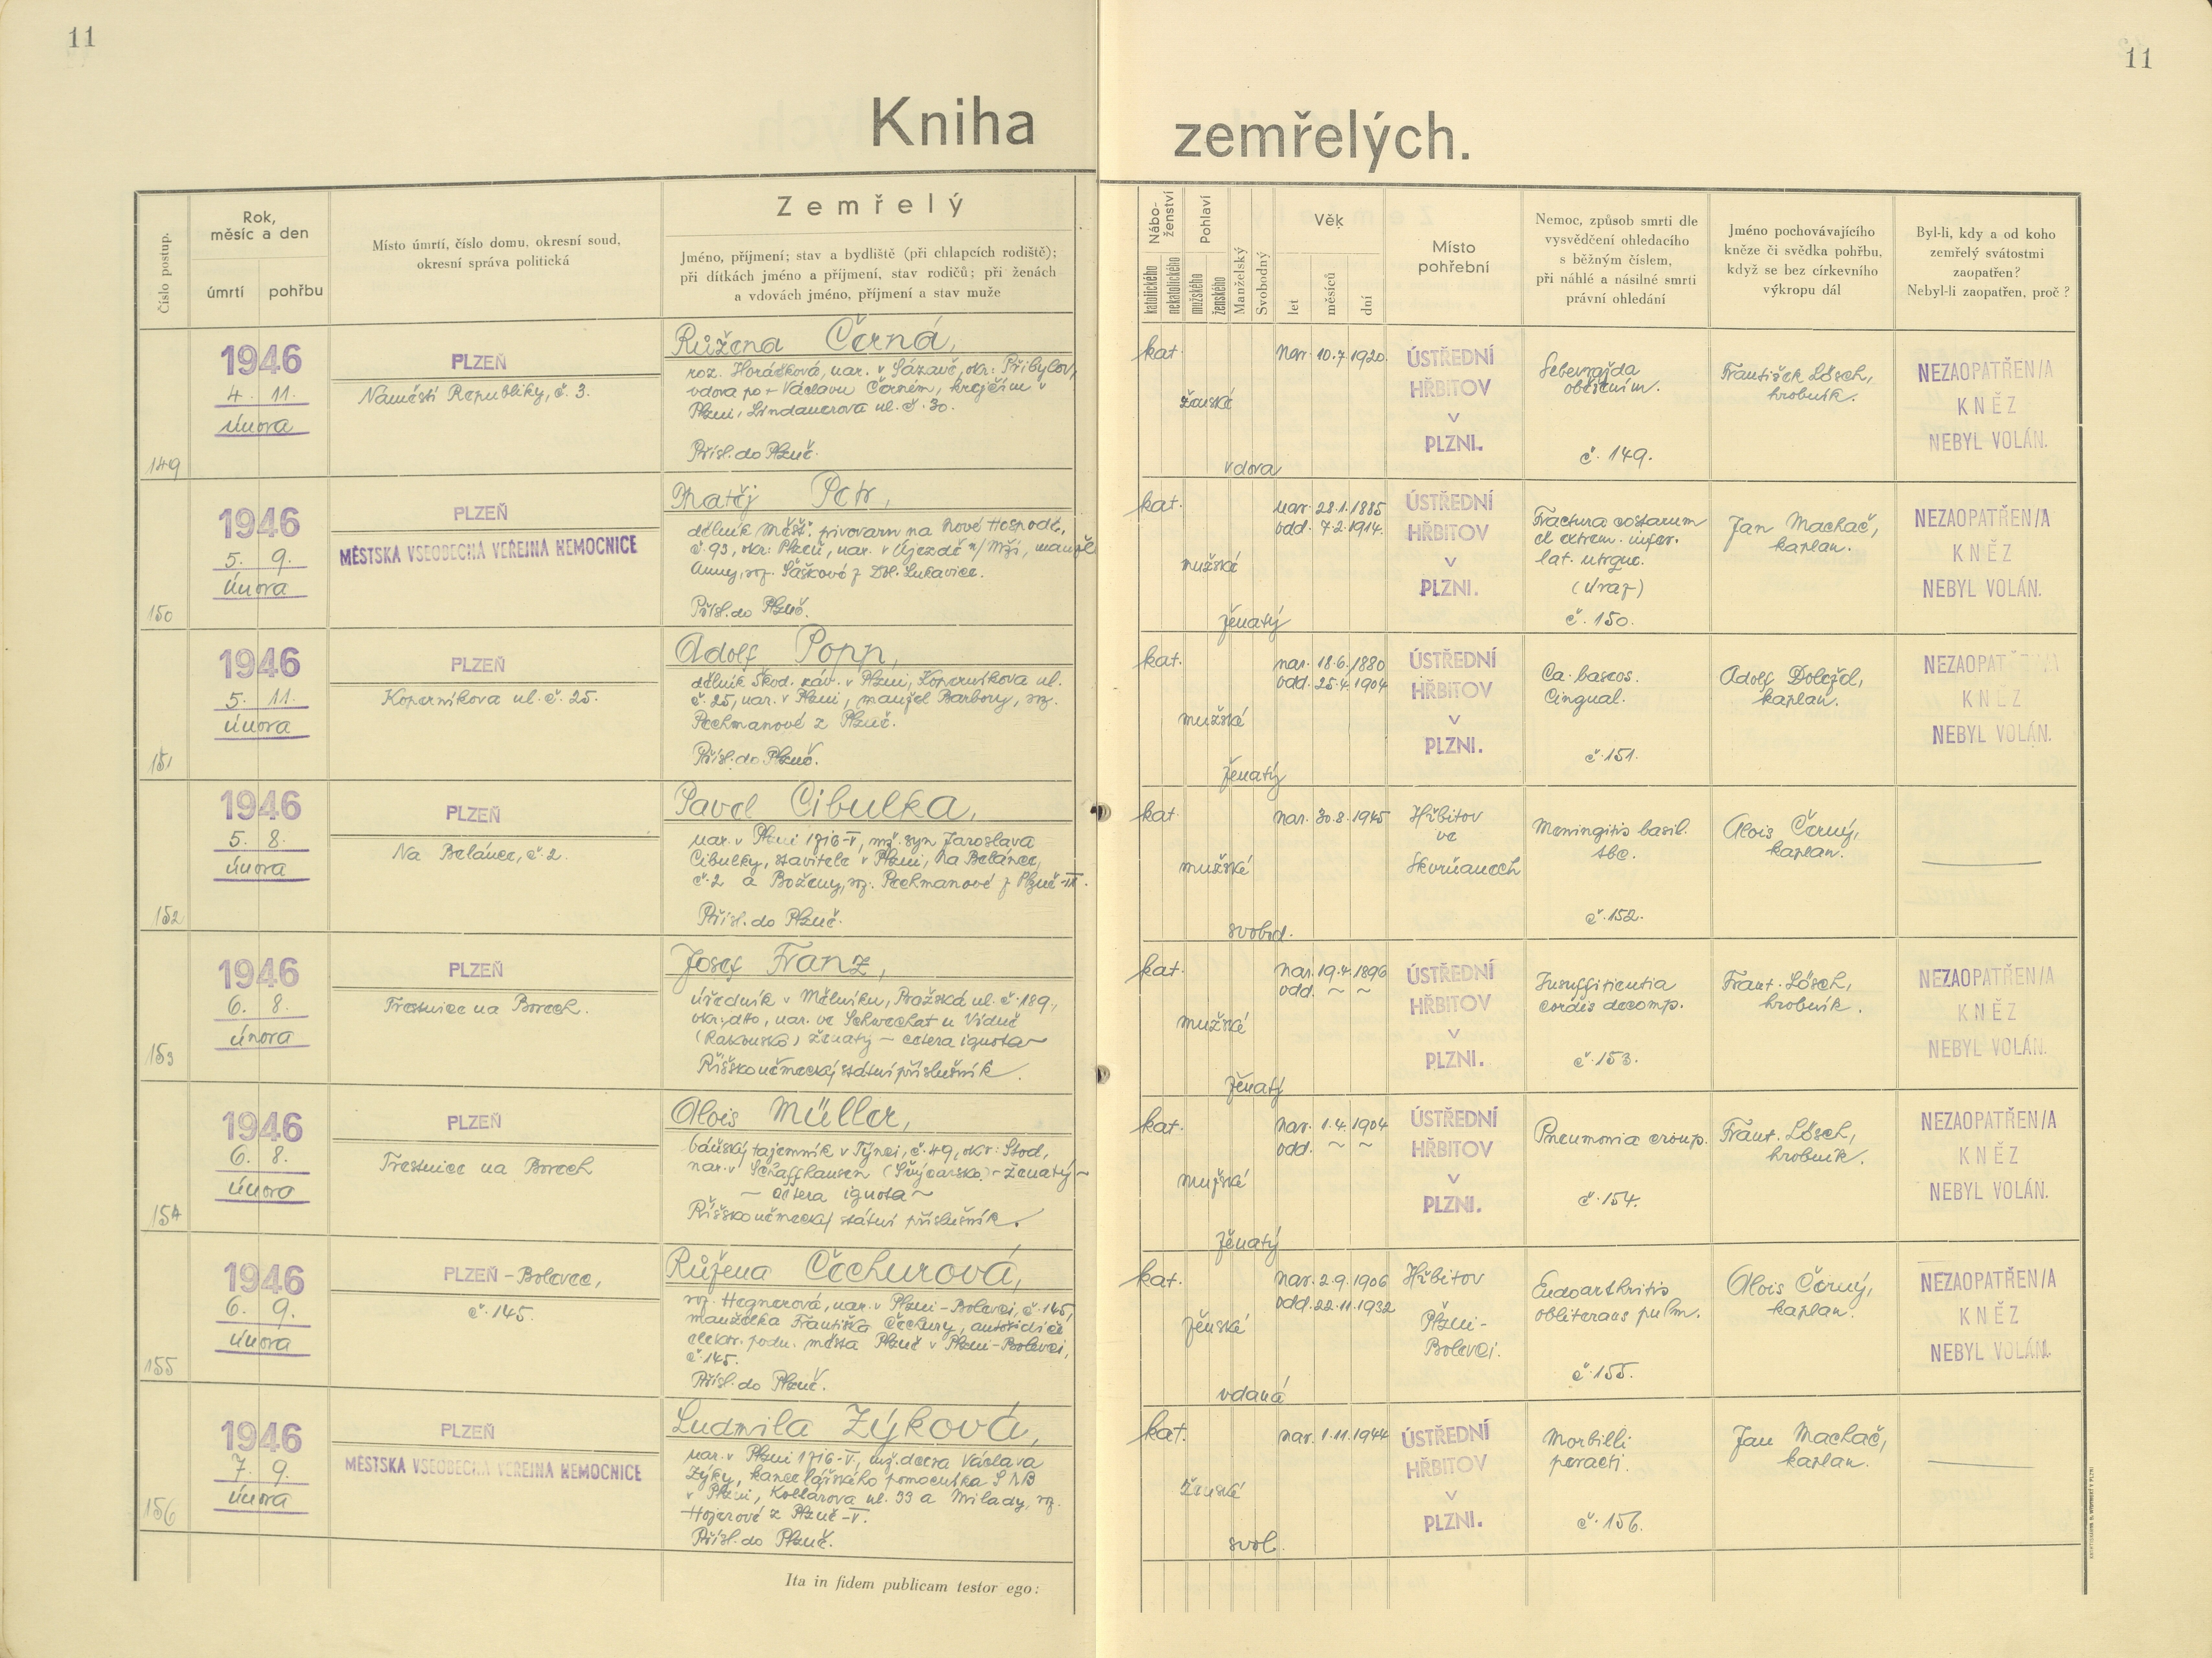 11
11
Kniha zemřelých.
Číslo postup.
Rok,
měsíc a den
úmrtí
pohřbu
Místo úmrtí, číslo domu, okresní soud,
okresní správa politická
Zemřelý
Jméno, příjmení; stav a bydliště (při chlapcích rodiště);
při dítkách jméno a příjmení, stav rodičů; při ženách
a vdovách jméno, příjmení a stav muže
Nábo-
ženství
katolického
nekatolického
Pohlaví
mužského
ženského
Manželský
Svobodný
Věk
let
měsíců
dní
Místo
pohřební
Nemoc, způsob smrti dle
vysvědčení ohledacího
s běžným číslem,
při náhlé a násilné smrti
právní ohledání
Jméno pochovávajícího
kněze či svědka pohřbu,
když se bez církevního
výkropu dál
Byl-li, kdy a od koho
zemřelý svátostmi
zaopatřen?
Nebyl-li zaopatřen, proč ?
149
1946
4. 11.
února
PLZEŇ
Náměstí Republiky, č. 3.
Růžena Černá,
roz. Horáčková, nar. v Sázavě, okr: Přibyslov,
vdova po + Václavu Černém, krejčím v
Plzni, Lindauerova ul. č. 30.
Přísl. do Plzně.
kat.
ženské
vdova
nar. 10.7.1920
ÚSTŘEDNÍ
HŘBITOV
V
PLZNI.
Sebevražda
oběšením.
č. 149.
František Lösch,
hrobník.
NEZAOPATŘEN/A
KNĚZ
NEBYL VOLÁN.
150
1946
5. 9.
února
PLZEŇ
MĚSTSKÁ VŠEOBECNÁ VEŘEJNÁ NEMOCNICE
Matěj Petr,
dělník Měšť. pivovaru na Nové Hospodě,
č. 93, okr: Plzeň, nar. v Újezdě n/Mží, manžel
Anny, roz. Šaškové z Dol. Lukavice.
Přísl. do Plzně.
kat.
mužské
ženatý
nar. 28.1.1885
odd. 7.2.1914.
ÚSTŘEDNÍ
HŘBITOV
V
PLZNI.
Fractura costarum
et extrem. infer.
lat. utrque.
(úraz)
č. 150.
Jan Machač,
kaplan.
NEZAOPATŘEN/A
KNĚZ
NEBYL VOLÁN.
151
1946
5. 11.
února
PLZEŇ
Koperníkova ul. č. 25.
Adolf Popp,
dělník Škod. záv. v Plzni, Koperníkova ul.
č. 25, nar. v Plzni, manžel Barbory, roz.
Pechmanové z Plzně.
Přísl. do Plzně.
kat.
mužské
ženatý
nar. 18.6.1880
odd. 25.4.1904
ÚSTŘEDNÍ
HŘBITOV
V
PLZNI.
Ca. baseos.
Cingual.
č. 151.
Adolf Doležel,
kaplan.
NEZAOPATŘEN/A
KNĚZ
NEBYL VOLÁN.
152
1946
5. 8.
února
PLZEŇ
Na Belánce, č. 2.
Pavel Cibulka,
nar. v Plzni 1716-V, mž. syn Jaroslava
Cibulky, stavitele v Plzni, Na Belánce,
č. 2 a Boženy, roz. Pechmanové z Plzně-III.
Přísl. do Plzně.
kat.
mužské
svobod.
nar. 30.8.1945
Hřbitov
ve
Skvrňanech
Meningitis basil.
tbc.
č. 152.
Alois Černý,
kaplan.
153
1946
6. 8.
února
PLZEŇ
Trestnice na Borech.
Josef Franz,
úředník v Mělníku, Pražská ul. č. 189,
okr: dtto, nar. ve Schwechat u Vídně
(Rakousko) ženatý – cetera ignota ~
Říšskoněmecký státní příslušník.
kat.
mužské
ženatý
nar. 19.4.1896
odd. ~ ~
ÚSTŘEDNÍ
HŘBITOV
V
PLZNI.
Insufficientia
cordis decomp.
č. 153.
Frant. Lösch,
hrobník.
NEZAOPATŘEN/A
KNĚZ
NEBYL VOLÁN.
154
1946
6. 8.
února
PLZEŇ
Trestnice na Borech
Alois Müller,
báňský tajemník v Týnci, č. 49, okr: Stod,
nar. v Schaffhausen (Švýcarsko) – ženatý ~
~ cetera ignota ~
Říšskoněmecký státní příslušník.
kat.
mužské
ženatý
nar. 1.4.1904
odd. ~ ~
ÚSTŘEDNÍ
HŘBITOV
V
PLZNI.
Pneumonia croup.
č. 154.
Frant. Lösch,
hrobník.
NEZAOPATŘEN/A
KNĚZ
NEBYL VOLÁN.
155
1946
6. 9.
února
PLZEŇ - Bolevec,
č. 145.
Růžena Čechurová,
roz. Hegnerová, nar. v Plzni-Bolevci, č. 145,
manželka Františka Čechury, autořidiče
elektr. podn. města Plzně v Plzni-Bolevci,
č. 145.
Přísl. do Plzně.
kat.
ženské
vdaná
nar. 2.9.1906
odd. 22.11.1932
Hřbitov
Plzni-
Bolevci.
Endoarthritis
obliterans pulm.
č. 155.
Alois Černý,
kaplan.
NEZAOPATŘEN/A
KNĚZ
NEBYL VOLÁN.
156
1946
7. 9.
února
PLZEŇ
MĚSTSKÁ VŠEOBECNÁ VEŘEJNÁ NEMOCNICE
Ludmila Zýková,
nar. v Plzni 1716-V, mž. dcera Václava
Zýky, kancelářského pomocníka SNB
v Plzni, Kollárova ul. 33 a Milady, roz.
Hojerové z Plzně-V.
Přísl. do Plzně.
kat.
ženské
svob.
nar. 1.11.1944
ÚSTŘEDNÍ
HŘBITOV
V
PLZNI.
Morbilli
peracti.
č. 156.
Jan Machač,
kaplan.
Ita in fidem publicam testor ego: